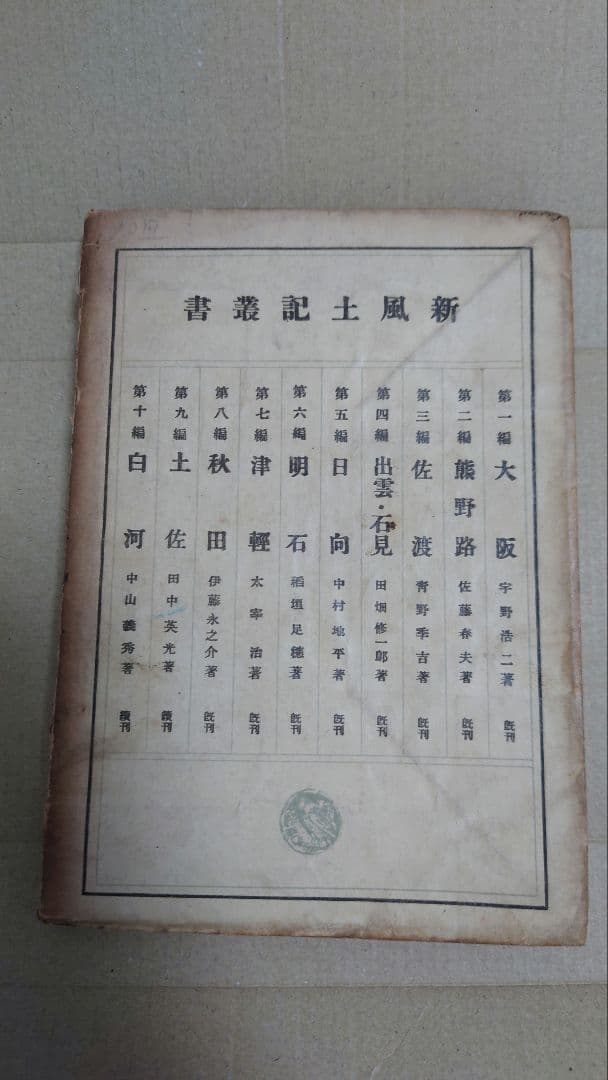 新風土記叢書
第一編 大阪 宇野浩二著 既刊
第二編 熊野路 佐藤春夫著 既刊
第三編 佐渡 青野季吉著 既刊
第四編 出雲・石見 田畑修一郎著 既刊
第五編 日向 中村地平著 既刊
第六編 明石 稻垣足穗著 既刊
第七編 津輕 太宰治著 既刊
第八編 秋田 伊藤永之介著 既刊
第九編 土佐 田中英光著 續刊
第十編 白河 中山義秀著 續刊